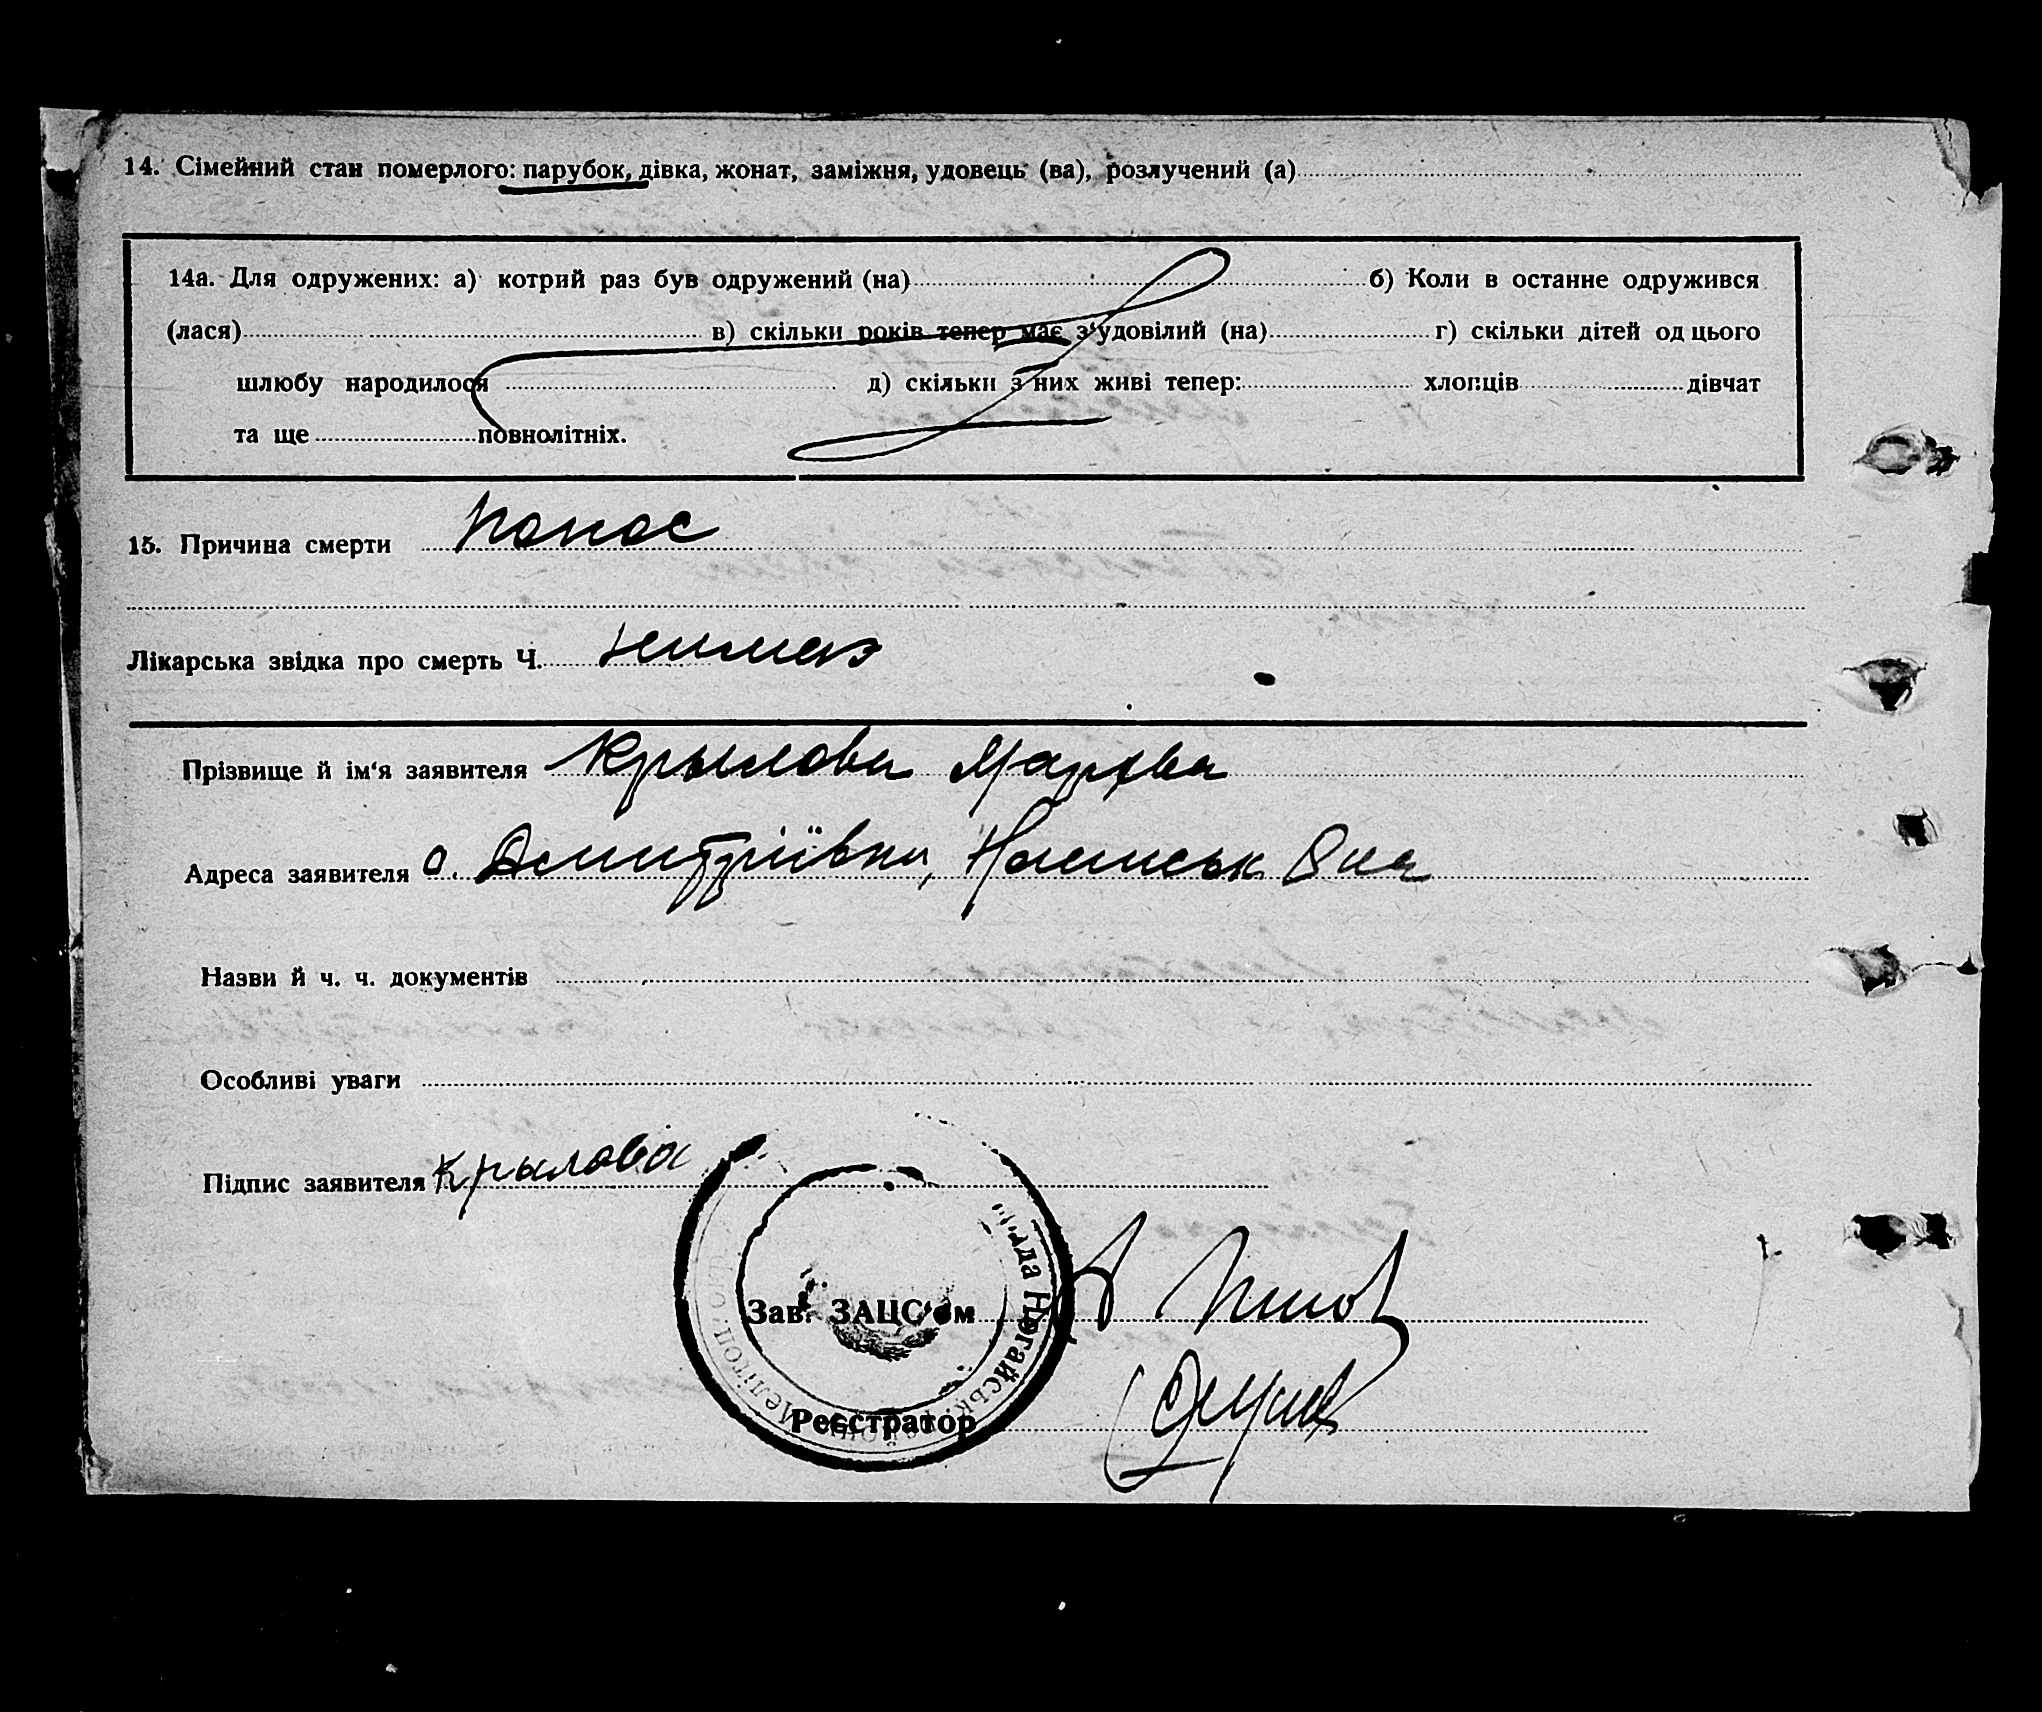 14. Сімейний стан померлого: парубок, дівка, жонат, заміжня, удовець (ва), розлучений (а)
14а. Для одружених: а) котрий раз був одружений (на) б) Коли в останнє одружився
(лася) в) скільки років тепер має з‘удовілий (на) г) скільки дітей од цього
шлюбу народилося д) скільки з них живі тепер: хлопців дівчат
та ще повнолітніх.
15. Причина смерти понос
Лікарська звідка про смерть Ч. немає
Прізвище й ім‘я заявителя Крылова Марфва
Адреса заявителя с. Дмитрівка,
Назви й ч. ч. документів
Особливі уваги
Підпис заявителя Крылова
Зав. ЗАЦС‘ом
Реєстратор
рада Ногайськ. Мелітоп.